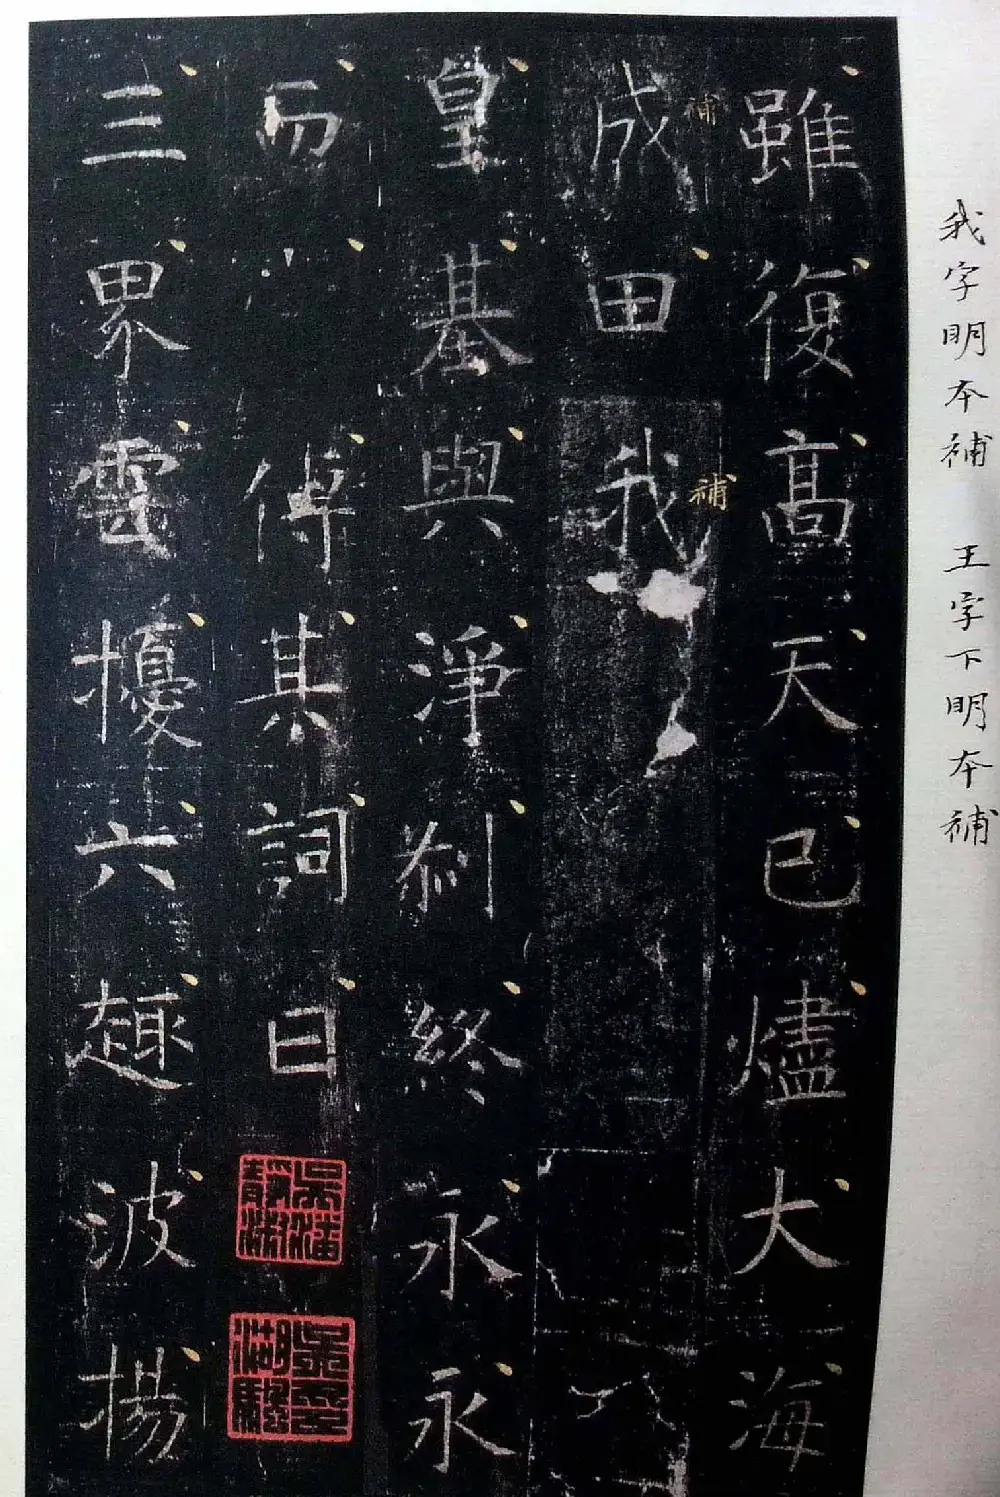 我字明本補　王字下明本補
雖復高天已燼大海
成補田我補
皇基與淨剎終永永
而傳其詞曰
吳潘靜淑
吳湖驊
三界雲擾六趣波揚